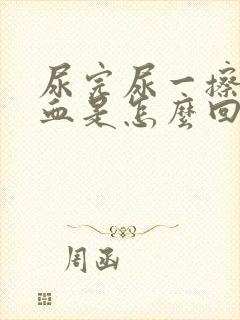 尿完尿一擦
血是怎麼回
周函